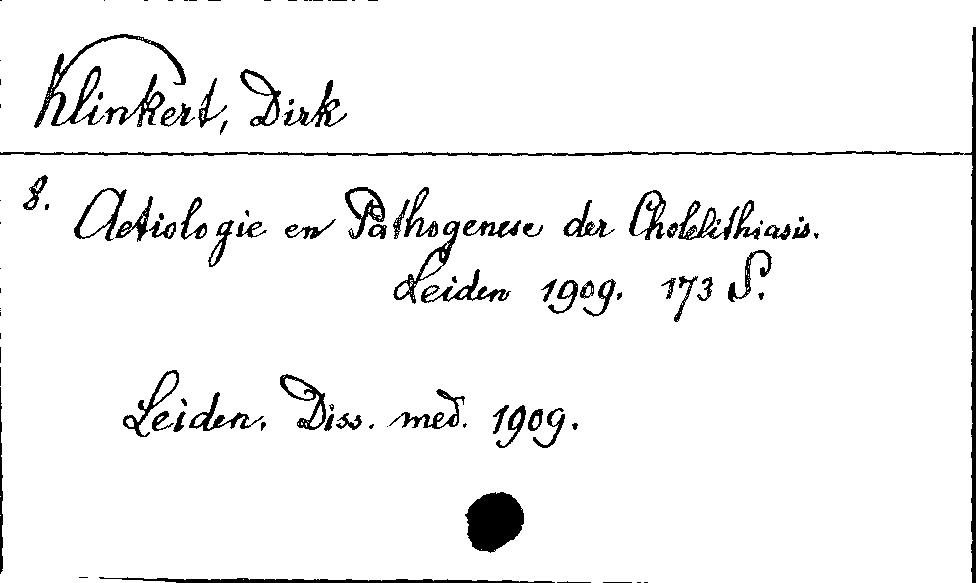 Klinkert, Dirk
8. Aetiologie en Pathogenese der Cholelithiasis.
Leiden 1909. 173 S.
Leiden. Diss. med. 1909.